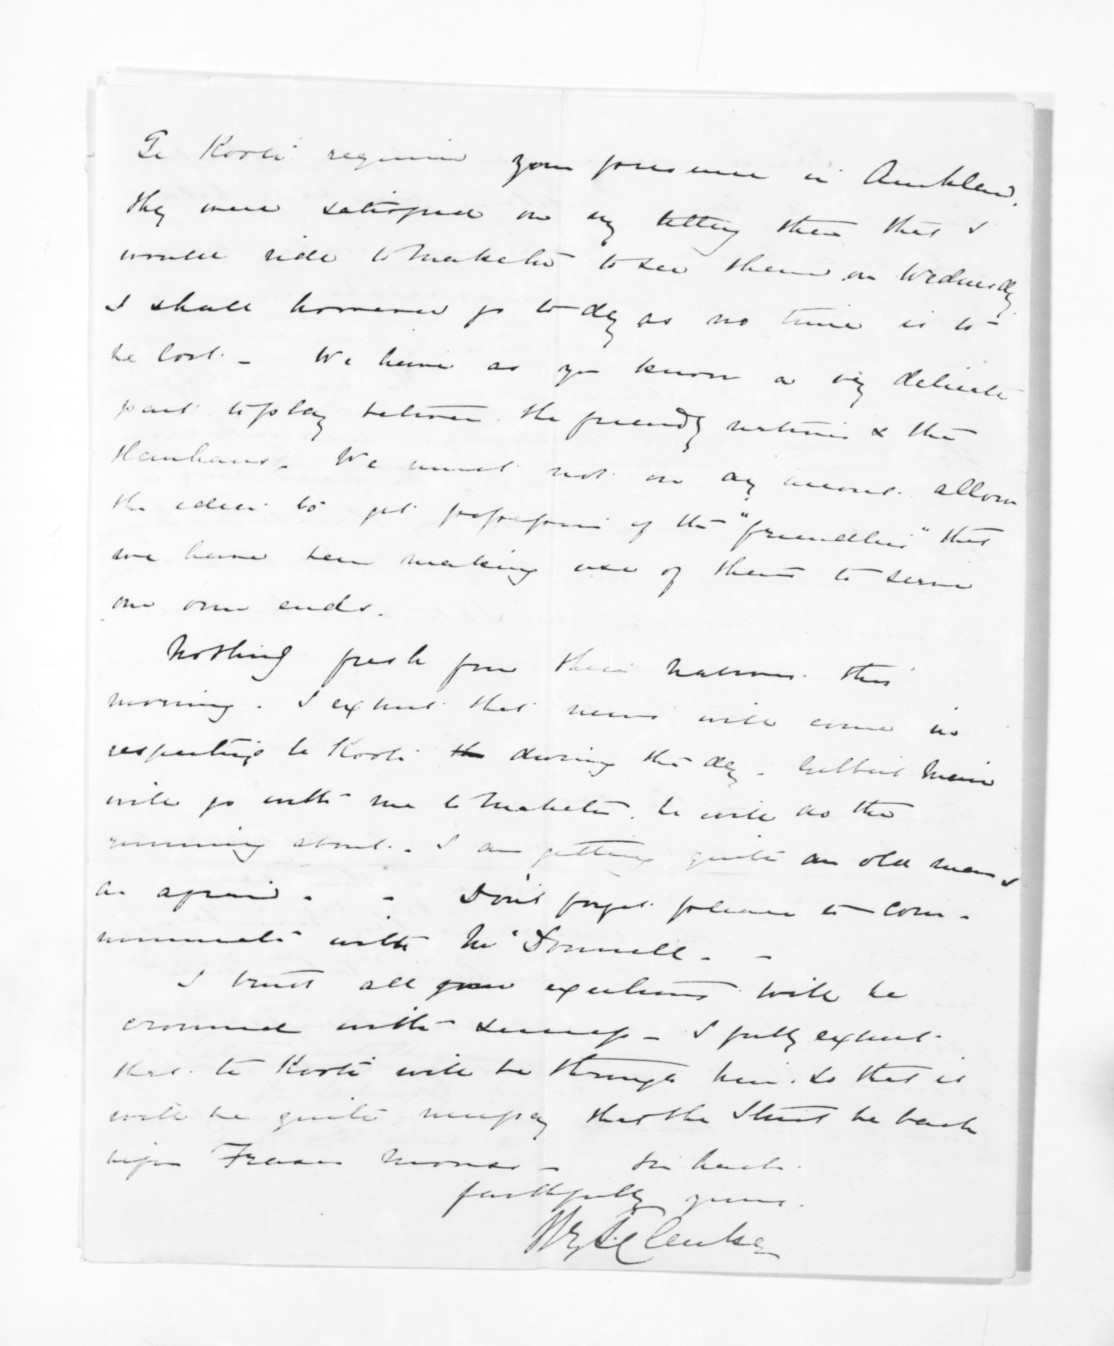 Te Kooti required your presence in Auckland.
they were satisfied on my telling them that I
would ride to Maketu to see them on Wednesday
I shall however go to day as no time is to
be lost. - We have as you know a very delicate
part to play between the friendly natives & the
Hauhaus. We must not on any account allow
the idea to get possession of the "friendlies" that
we have been making use of them to serve
our own ends.
Nothing fresh from these natives this
morning. I expect that news will come in
respecting te Kooti during the day. Gilbert Mair
will go with me to Maketu. he will do the
running about. - I am getting quite an old man &
Don't forget please to com-
municate with McDonnell. -
I trust all your exertions will be
crowned with success - I fully expect
that te Kooti will be through here. so that it
will be quite necessary that the Sturt be back
before Fraser moves - In haste.
faithfully yours.
Hy T Clarke